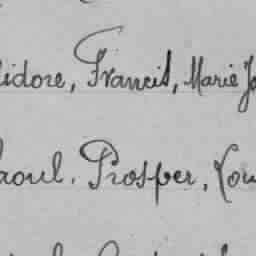 idore, Francis, Marie
aoul. Prosper,